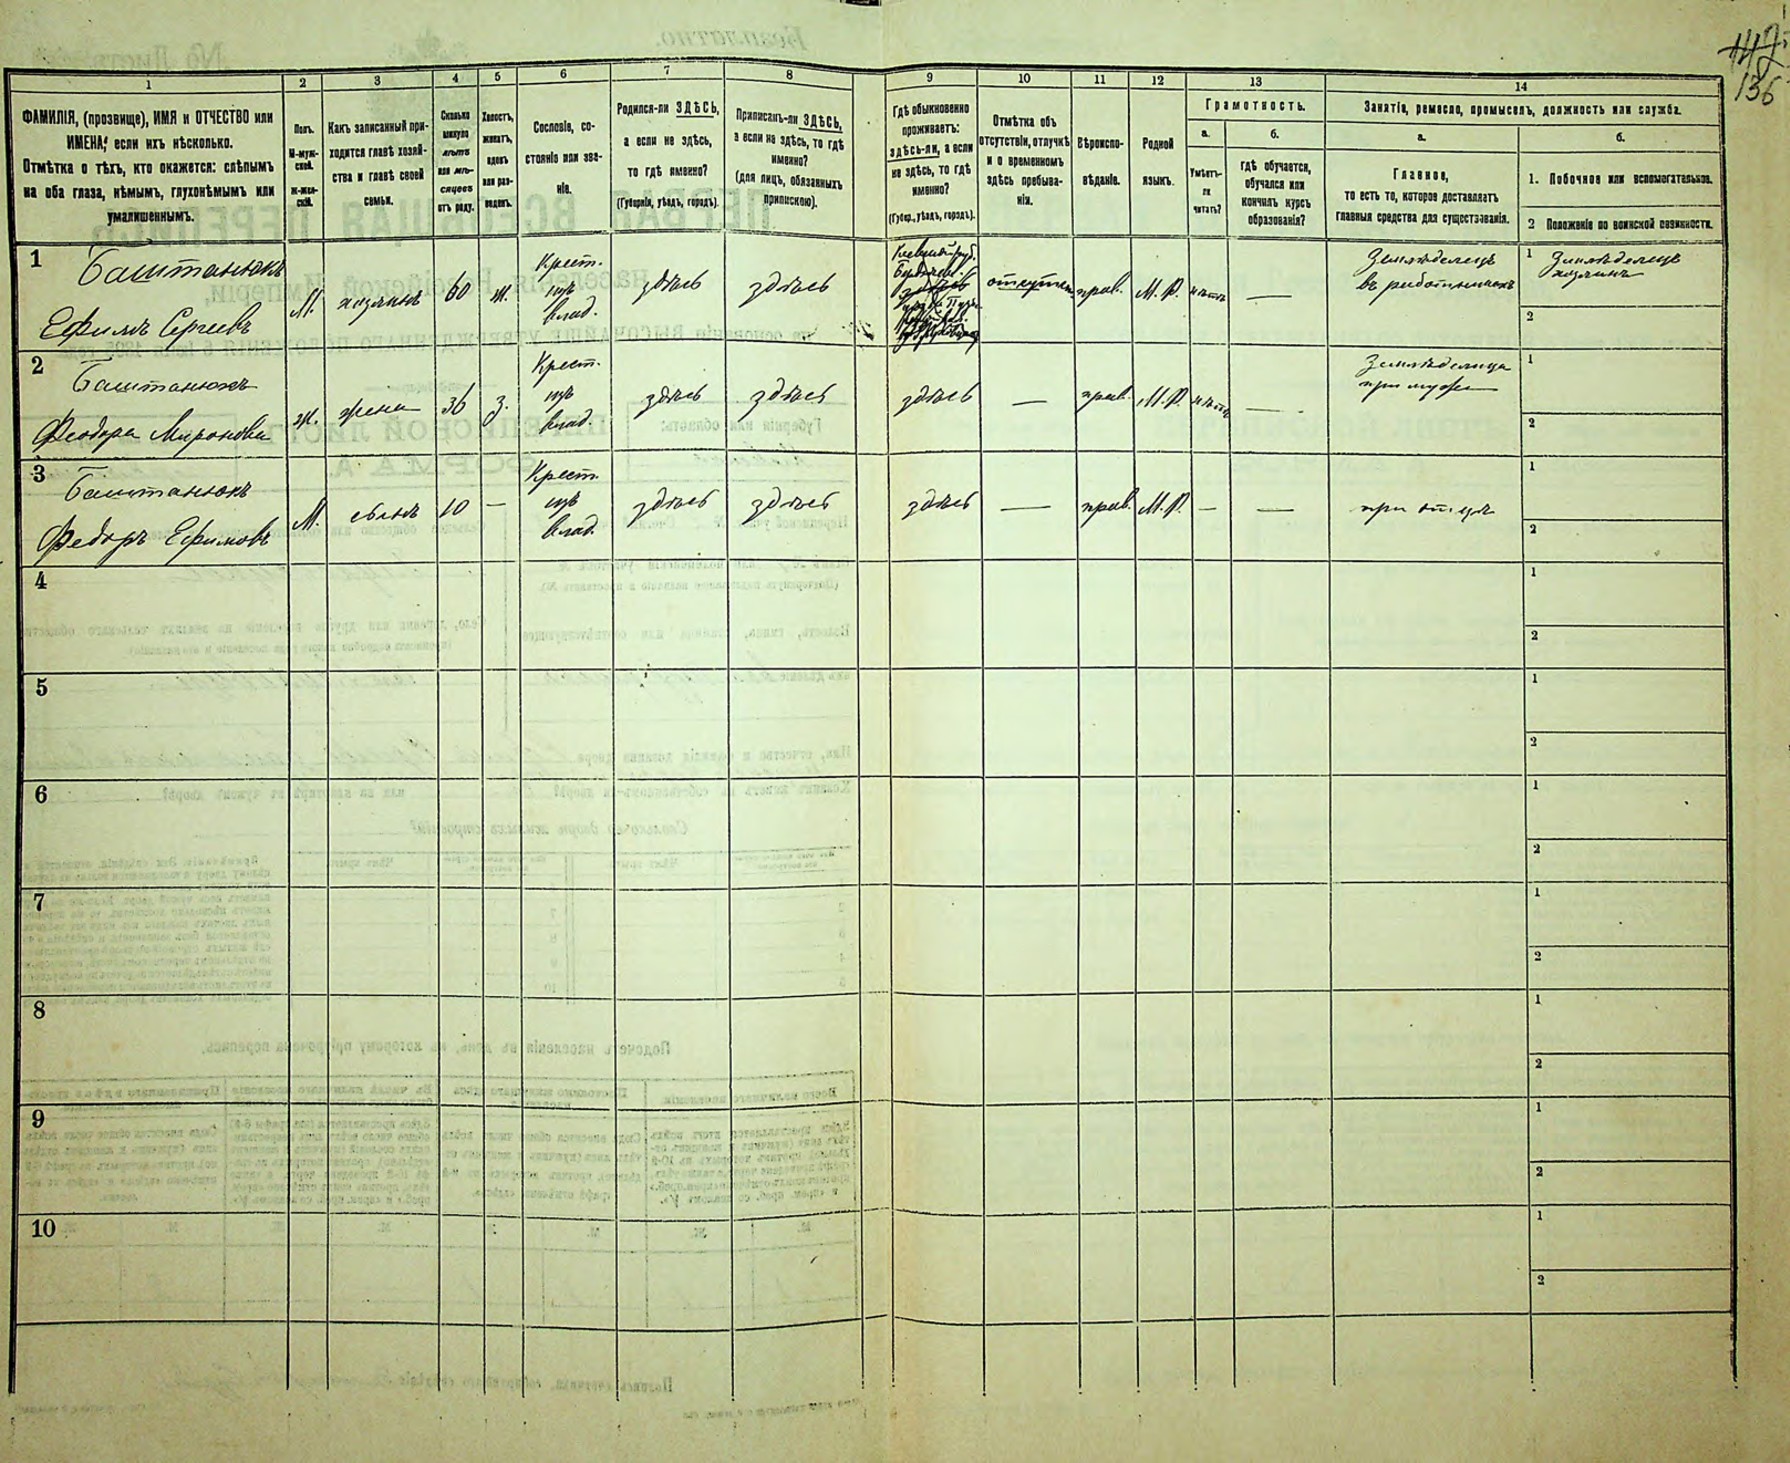 136
1
2
3
4
5
6
7
8
9
10
11
12
13
14
ФАМИЛІЯ, (прозвище), ИМЯ и ОТЧЕСТВО или
ИМЕНА, если ихъ нѣсколько.
Отмѣтка о тѣхъ, кто окажется: слѣпымъ
на оба глаза, нѣмымъ, глухонѣмымъ или
умалишеннымъ.
Полъ.
М-муж-
ской.
Ж-жен-
скій.
Какъ записанный при-
ходится главѣ хозяй-
ства и главѣ своей
семьи.
Сколько
минуло
лѣтъ
или мѣ-
сяцевъ
отъ роду.
Холостъ,
женатъ,
вдовъ
или раз-
веденъ.
Сословіе, со-
стояніе или зва-
ніе.
Родился-ли ЗДѢСЬ,
а если не здѣсь,
то гдѣ именно?
(Губернія, уѣздъ, городъ).
Приписанъ-ли ЗДѢСЬ,
а если не здѣсь, то гдѣ
именно?
(для лицъ, обязанныхъ
припискою).
Гдѣ обыкновенно
проживаетъ:
здѣсь-ли, а если
не здѣсь, то гдѣ
именно?
(Губер., уѣздъ, городъ).
Отмѣтка объ
отсутствіи, отлучкѣ
и о временномъ
здѣсь пребыва-
ніи.
Вѣроиспо-
вѣданіе.
Родной
языкъ.
Грамотность.
а.
Умѣетъ-
ли
читать?
б.
Гдѣ обучается,
обучался или
кончилъ курсъ
образованія?
Занятіе, ремесло, промыселъ, должность или служба.
а.
Главное,
то есть то, которое доставляетъ
главныя средства для существованія.
б.
1. Побочное или вспомогательное.
2 Положеніе по воинской повинности.
1
Баштанюкъ
Ефимъ Сергеевъ
М.
хозяинъ
60
ж.
Крест.
изъ
влад.
здѣсь
здѣсь
отсутств.
прав.
М. Р.
нѣтъ
—
Земледелецъ
въ работникахъ
1 Земледелецъ
хозяинъ
2
2
Баштанюкъ
Феодора Миронова
ж.
жена
36
з.
Крест.
изъ
влад.
здѣсь
здѣсь
здѣсь
—
прав.
М. Р.
нѣтъ
—
при мужѣ
1
2
3
Баштанюкъ
Федоръ Ефимовъ
М.
сынъ
10
—
Крест.
изъ
влад.
здѣсь
здѣсь
здѣсь
—
прав.
М. Р.
—
—
при отцѣ
1
2
4
1
2
5
1
2
6
1
2
7
1
2
8
1
2
9
1
2
10
1
2